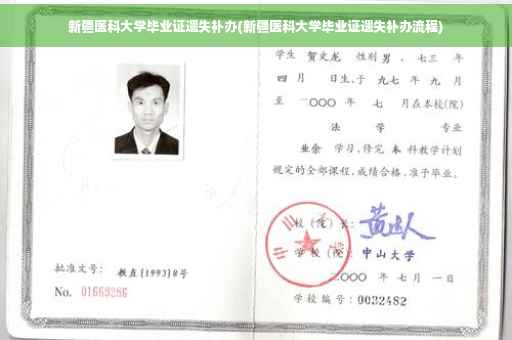 新疆医科大学毕业证遗失补办(新疆医科大学毕业证遗失补办流程)
学生 贺文龙 性别 男 ，七三 年
四 月 日生，于 九七 年 九 月
至 二〇〇〇 年 七 月在本校(院)
法 学 专业
业余 学习，修完 本 科教学计划
规定的全部课程，成绩合格，准予毕业。
校（院）长：
学校（院）：中山大学
二〇〇〇 年 七 月 一 日
学校编号：0032482
批准文号：教直[1993]8号
No. 01669286
中山大